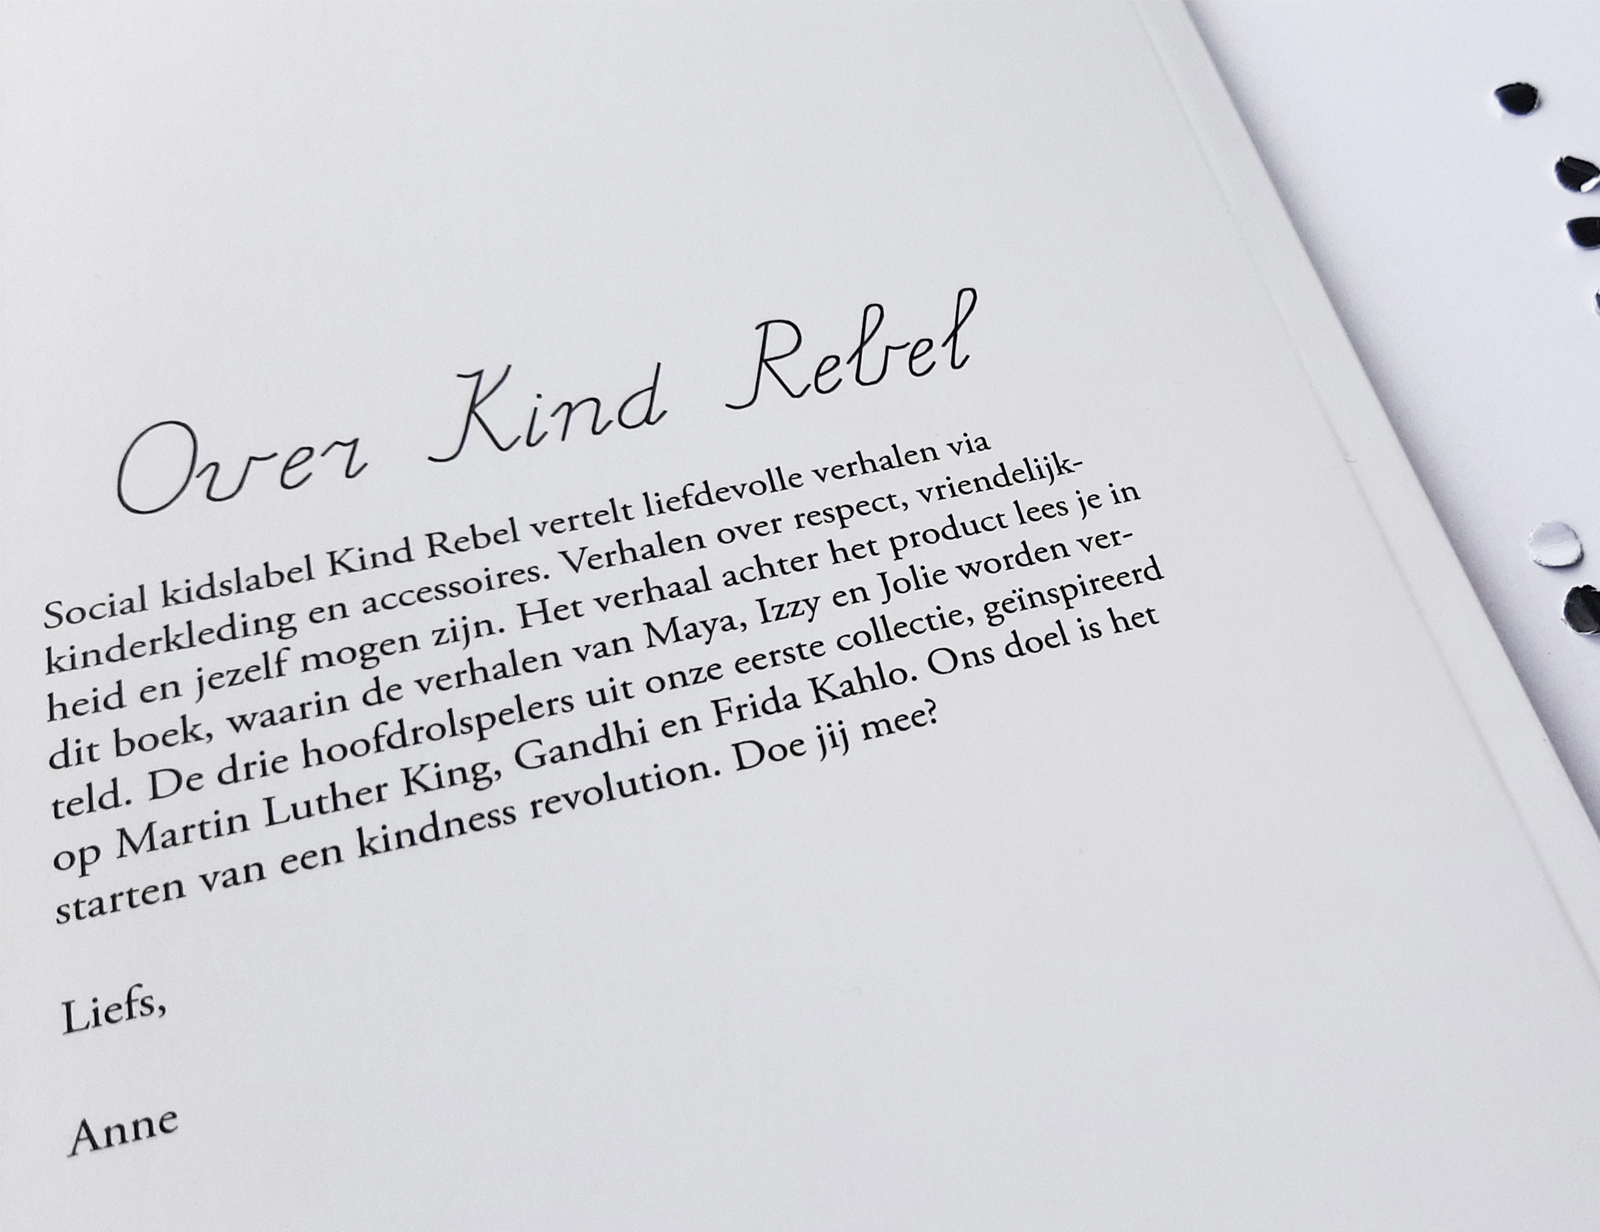 Over Kind Rebel
Social kidslabel Kind Rebel vertelt liefdevolle verhalen via
kinderkleding en accessoires. Verhalen over respect, vriendelijk-
heid en jezelf mogen zijn. Het verhaal achter het product lees je in
dit boek, waarin de verhalen van Maya, Izzy en Jolie worden ver-
teld. De drie hoofdrolspelers uit onze eerste collectie, geïnspireerd
op Martin Luther King, Gandhi en Frida Kahlo. Ons doel is het
starten van een kindness revolution. Doe jij mee?
Liefs,
Anne